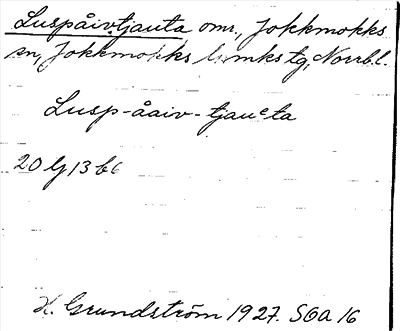 Luspåivtjauta omr., Jokkmokks
sn, Jokkmokks lpmks tg, Norrb.l.
Lusp-åaiv-tjauᶜta
20 G 13 b c
H. Grundström 1927. SOA 16